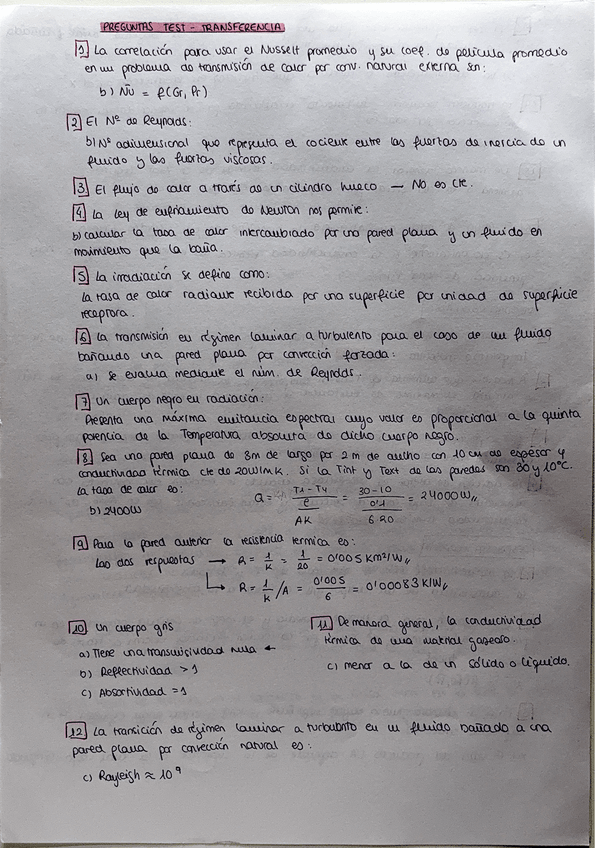 PREGUNTAS TEST - TRANSFERENCIA
1 La correlación para usar el Nusselt promedio y su coef. de película promedio
en un problema de transmisión de calor por conv. natural externa son:
b) Nu = f(Gr, Pr)
2 El Nº de Reynolds:
b) Nº adimensional que representa el cociente entre las fuerzas de inercia de un
fluido y las fuerzas viscosas.
3 El flujo de calor a través de un cilindro hueco — No es cte.
4 La ley de enfriamiento de Newton nos permite:
b) calcular la tasa de calor intercambiado por una pared plana y un fluido en
movimiento que la baña.
5 La irradiación se define como:
La tasa de calor radiante recibida por una superficie por unidad de superficie
receptora.
6 La transmisión en régimen laminar a turbulento para el caso de un fluido
bañando una pared plana por convección forzada:
a) se evalua mediante el núm. de Reynolds.
7 Un cuerpo negro en radiación:
Presenta una máxima emitancia espectral cuyo valor es proporcional a la quinta
potencia de la Temperatura absoluta de dicho cuerpo negro.
8 Sea una pared plana de 3m de largo por 2 m de ancho con 10 cm de espesor y
conductividad térmica cte de 20W/mK. Si la Tint y Text de las paredes son 30 y 10°C.
la tasa de calor es:
b) 2400W
Q = (T1 - T4) / (e / AK) = (30-10) / (0'1 / 6·20) = 24000 W//
9 Para la pared anterior la resistencia térmica es:
Las dos respuestas → R = 1/K = 1/20 = 0'005 Km²/W//
↳ R = 1/K /A = 0'005/6 = 0'00083 K/W//
10 Un cuerpo gris
a) Tiene una transmisividad nula ←
b) Reflectividad > 1
c) Absortividad = 1
11 De manera general, la conductividad
térmica de una material gaseoso.
c) menor a la de un sólido o líquido.
12 La transición de régimen laminar a turbulento en un fluido bañado a una
pared plana por convección natural es:
c) Rayleigh ≈ 10⁹